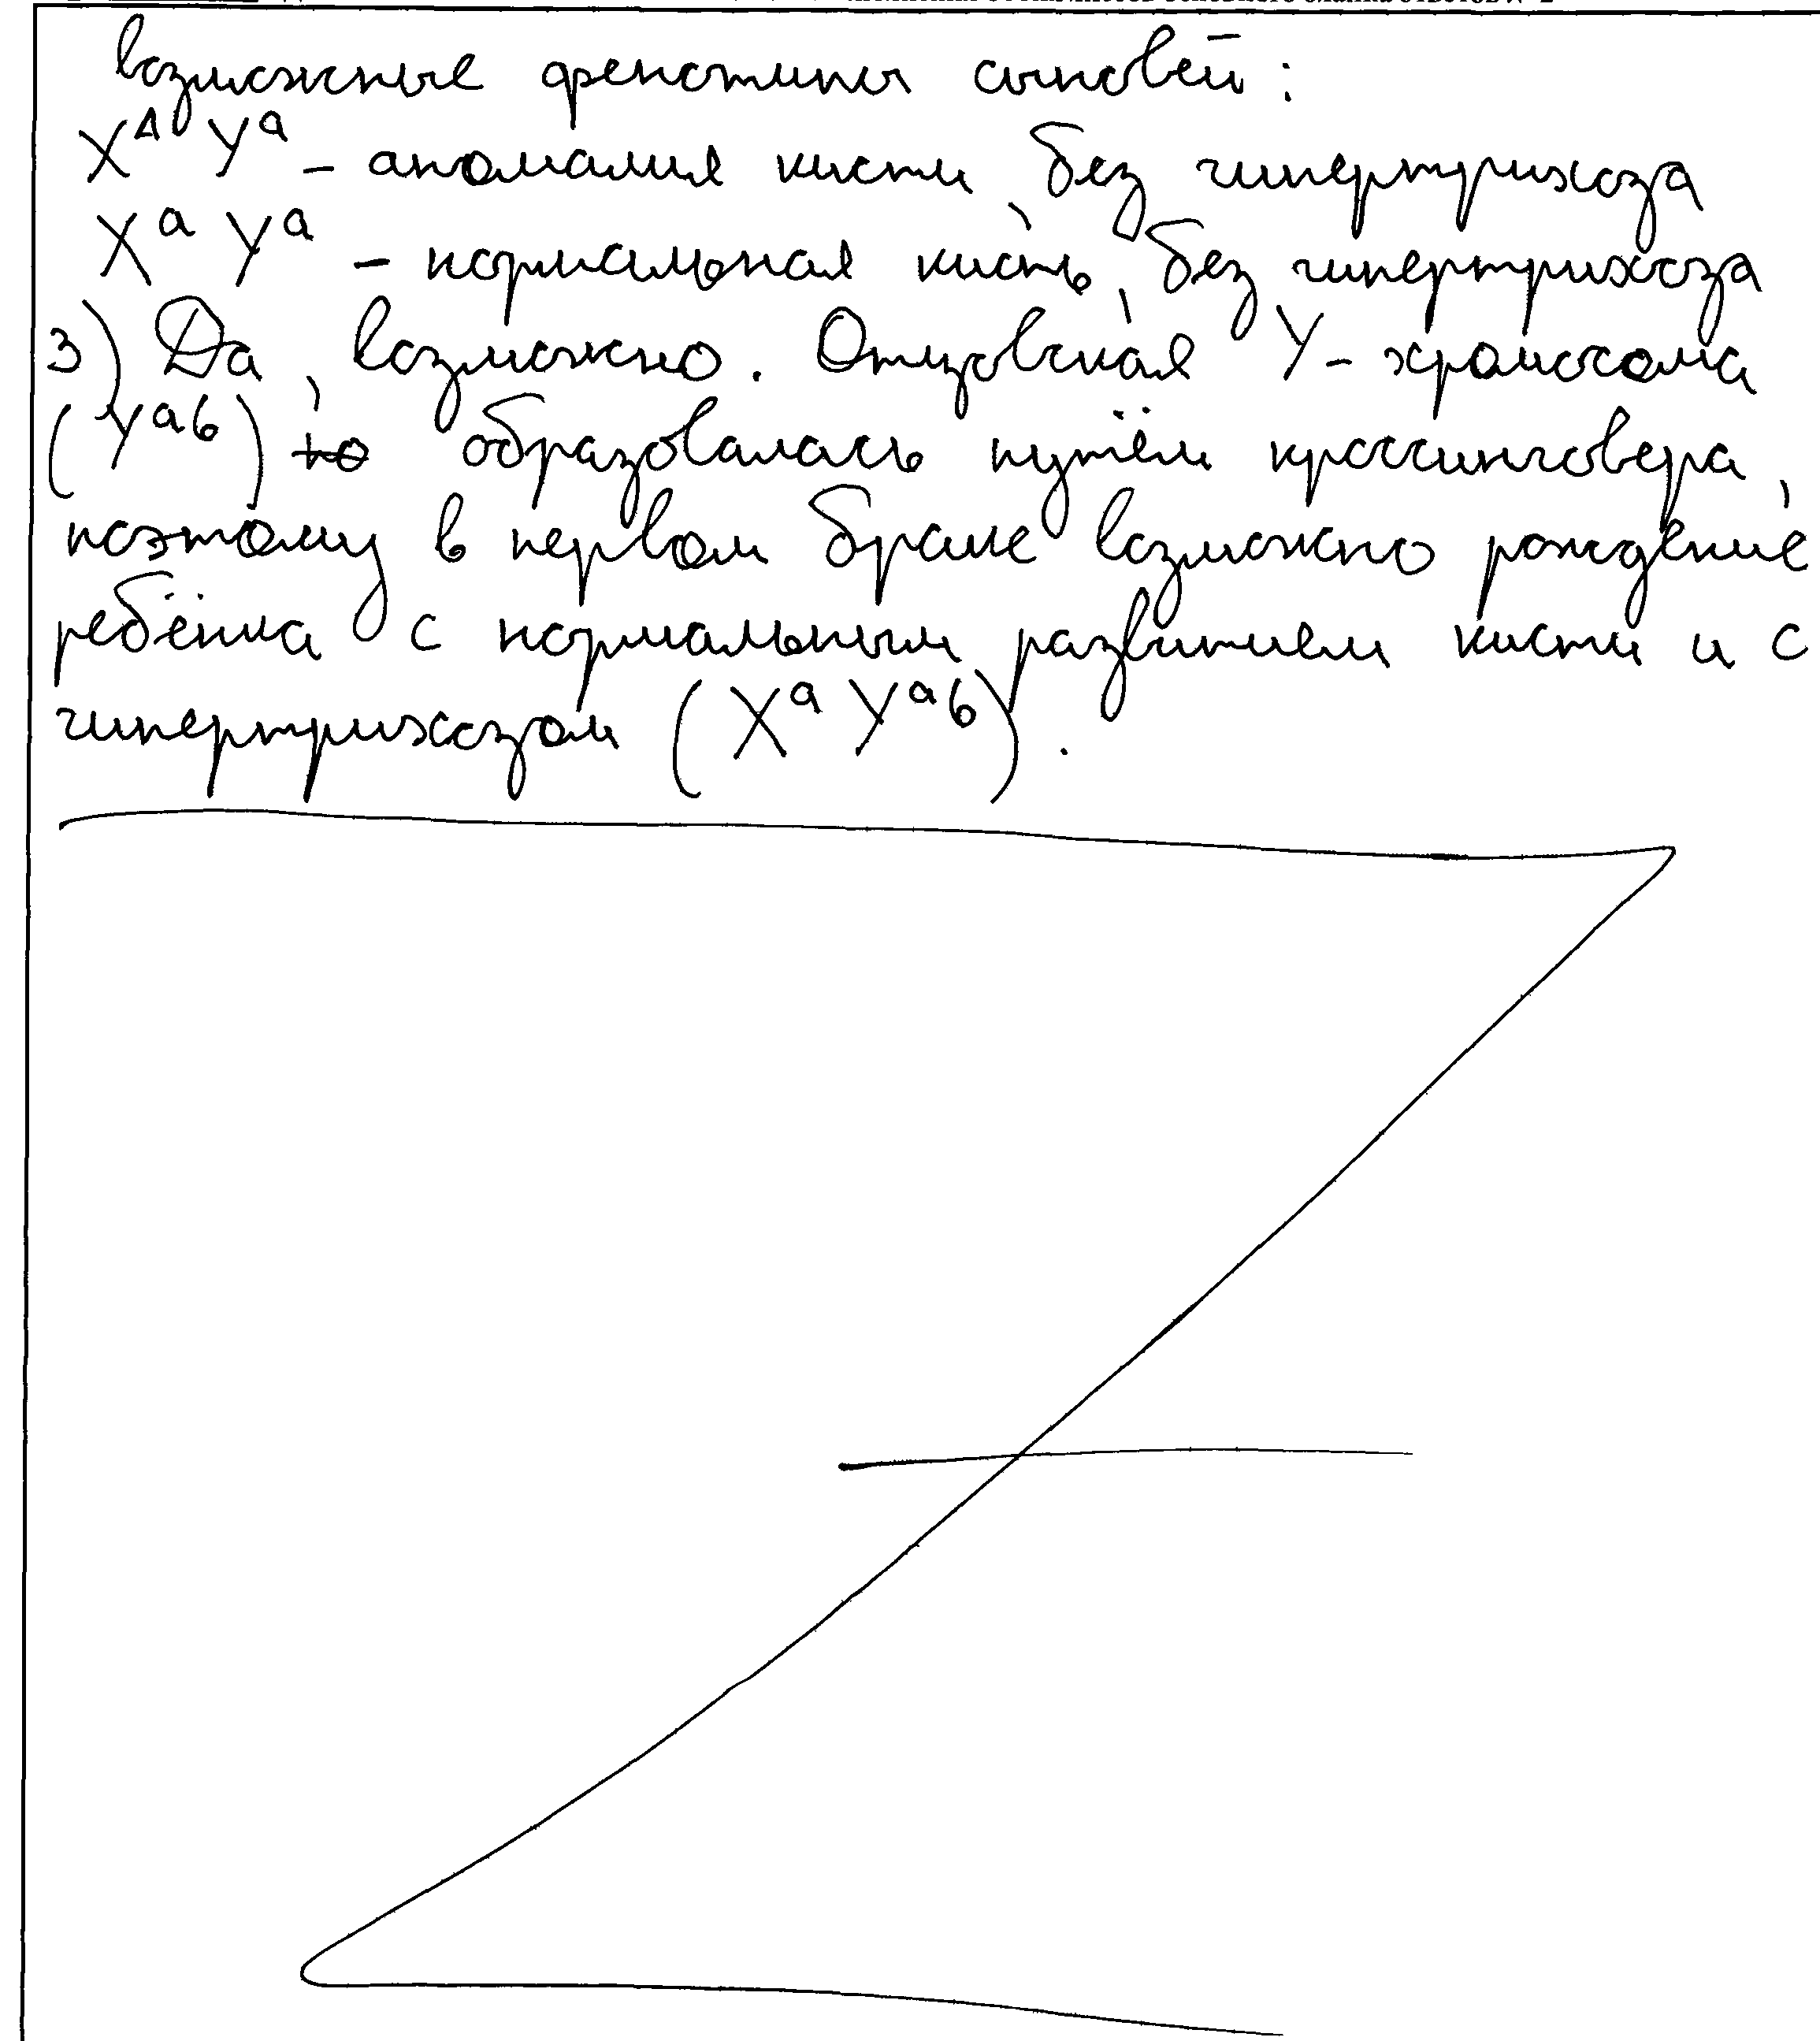 возможные фенотипы сыновей:
X^A Y^a - аномалия кисти, без гипертрихоза
X^a Y^a - нормальная кисть, без гипертрихоза
3) Да, возможно. Отцовская Y-хромосома
(Y^aб) то образовалась путём кроссинговера,
поэтому в первом браке возможно рождение
ребёнка с нормальным развитием кисти и с
гипертрихозом (X^a Y^aб).